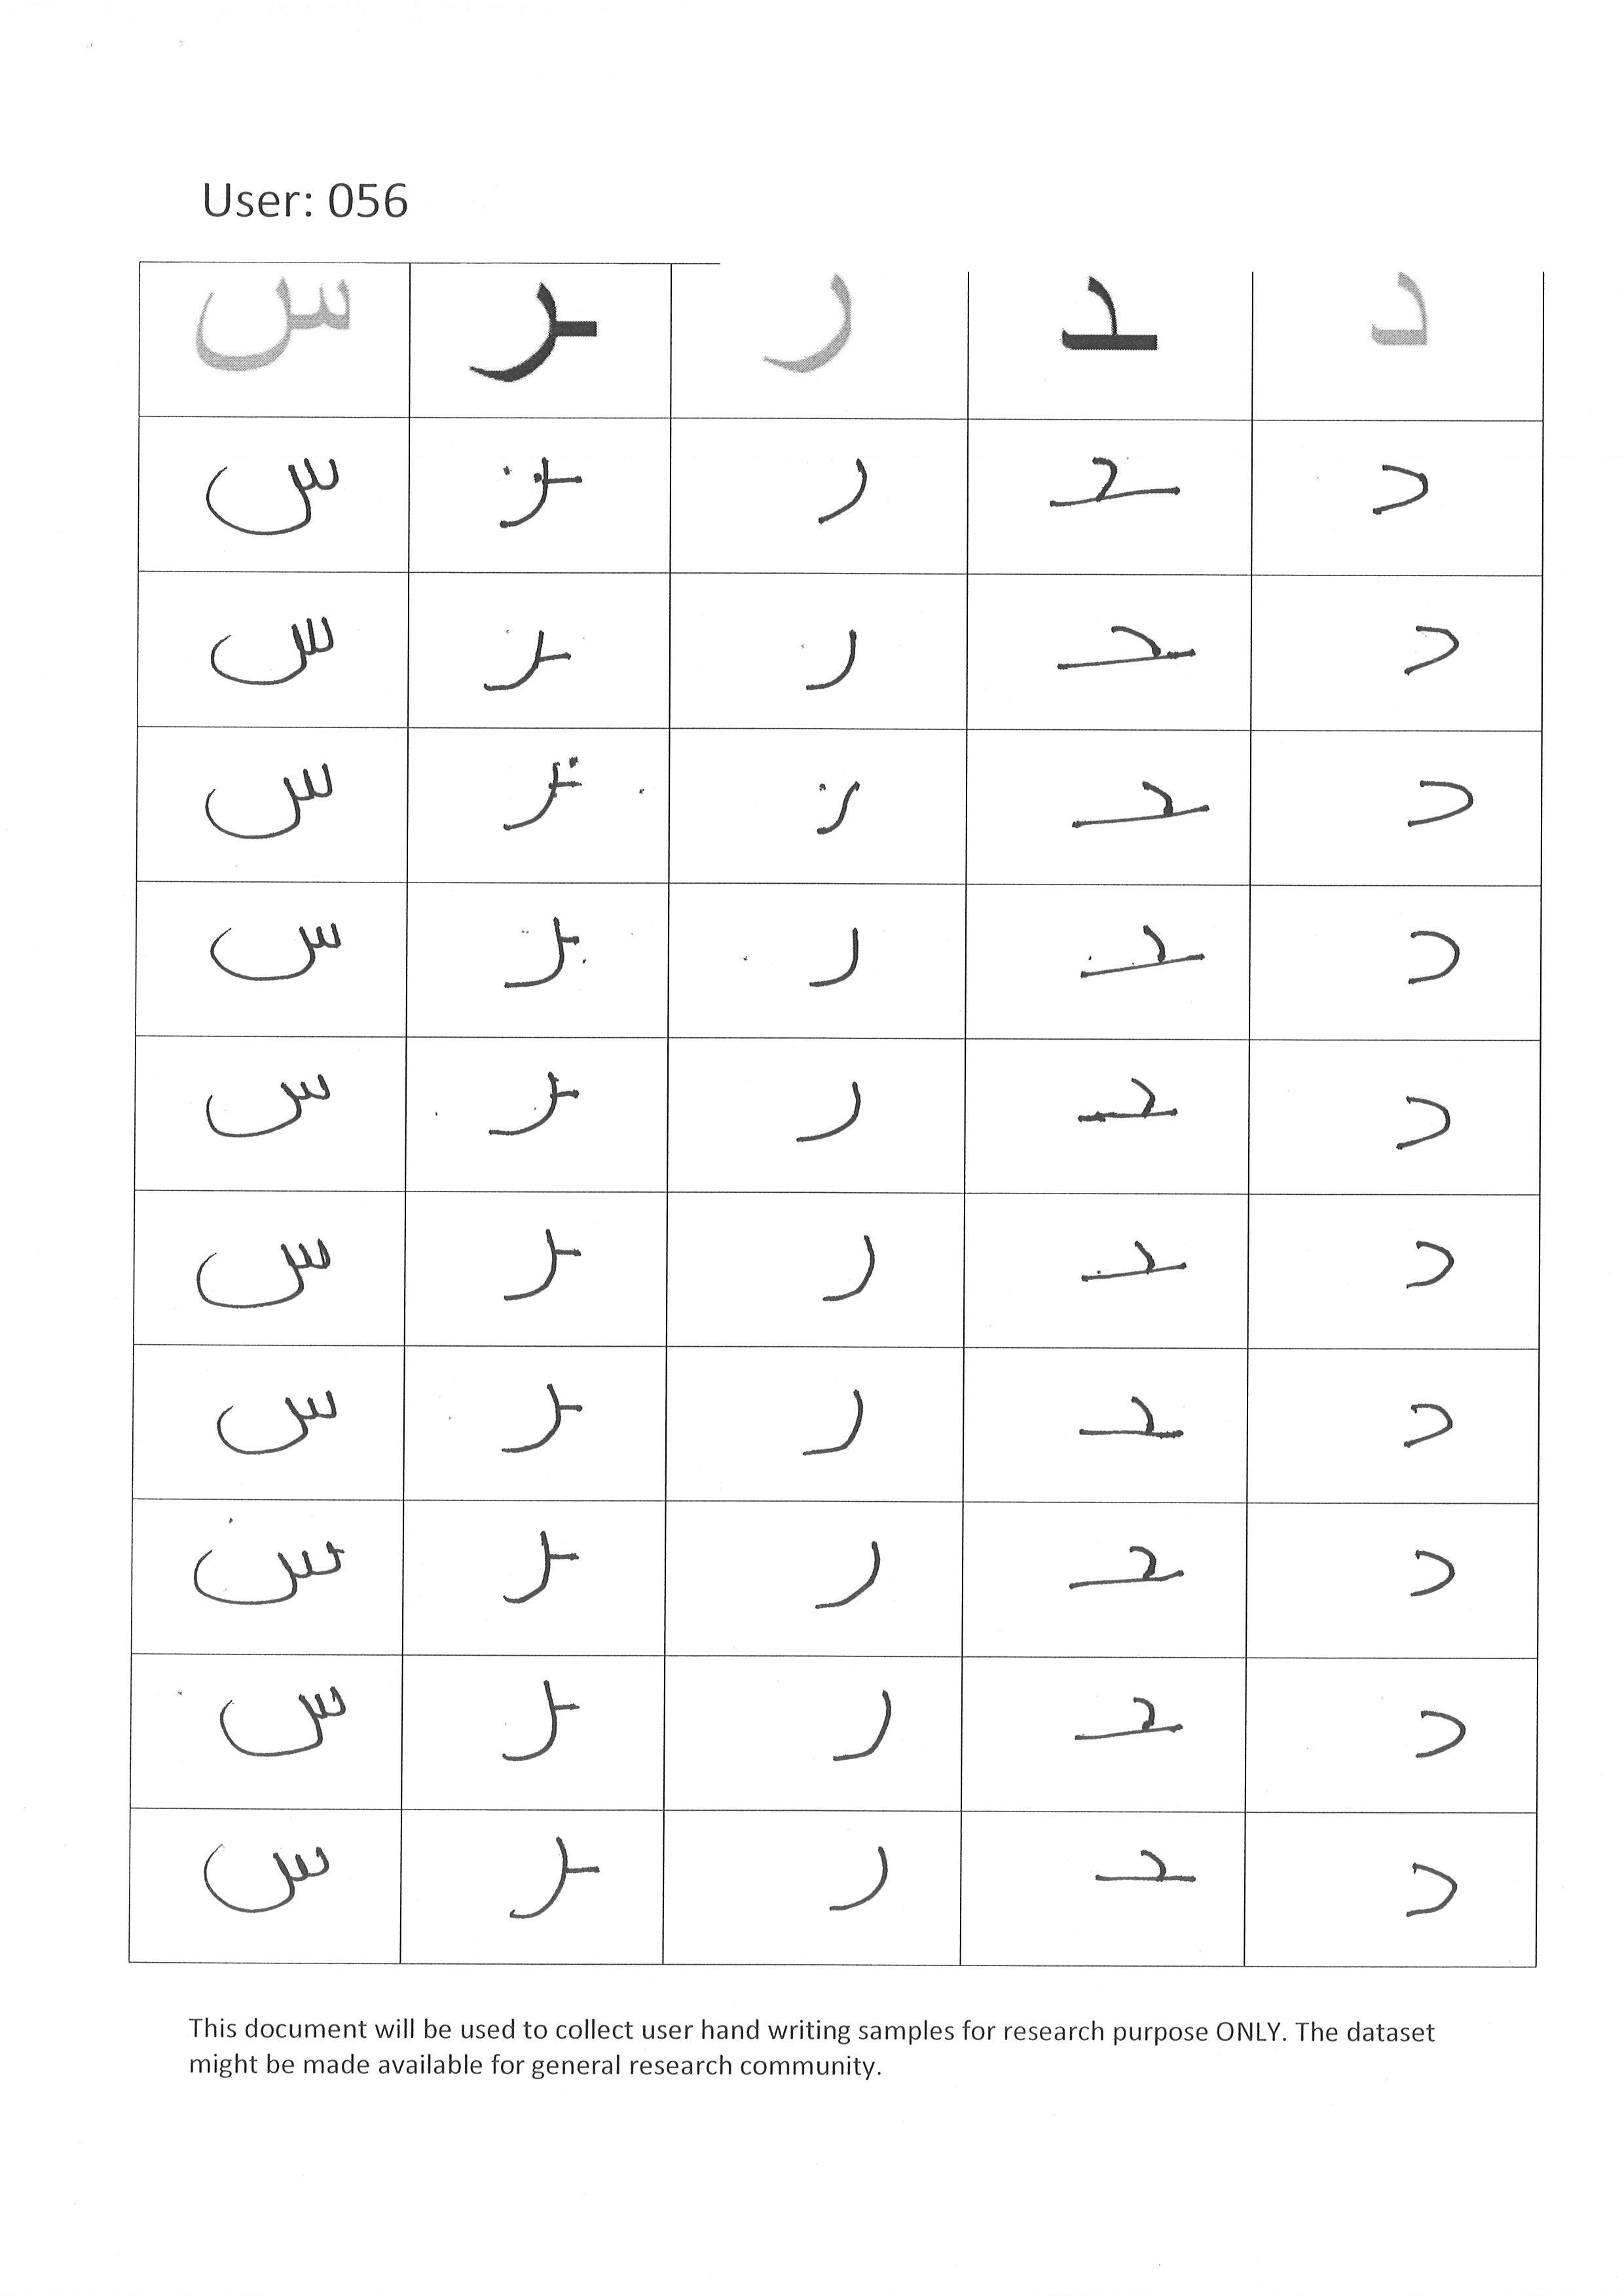 User: 056
س ـر ر ـد د
س ـر ر ـد د
س ـر ر ـد د
س ـر ر ـد د
س ـر ر ـد د
س ـر ر ـد د
س ـر ر ـد د
س ـر ر ـد د
س ـر ر ـد د
س ـر ر ـد د
س ـر ر ـد د
This document will be used to collect user hand writing samples for research purpose ONLY. The dataset
might be made available for general research community.